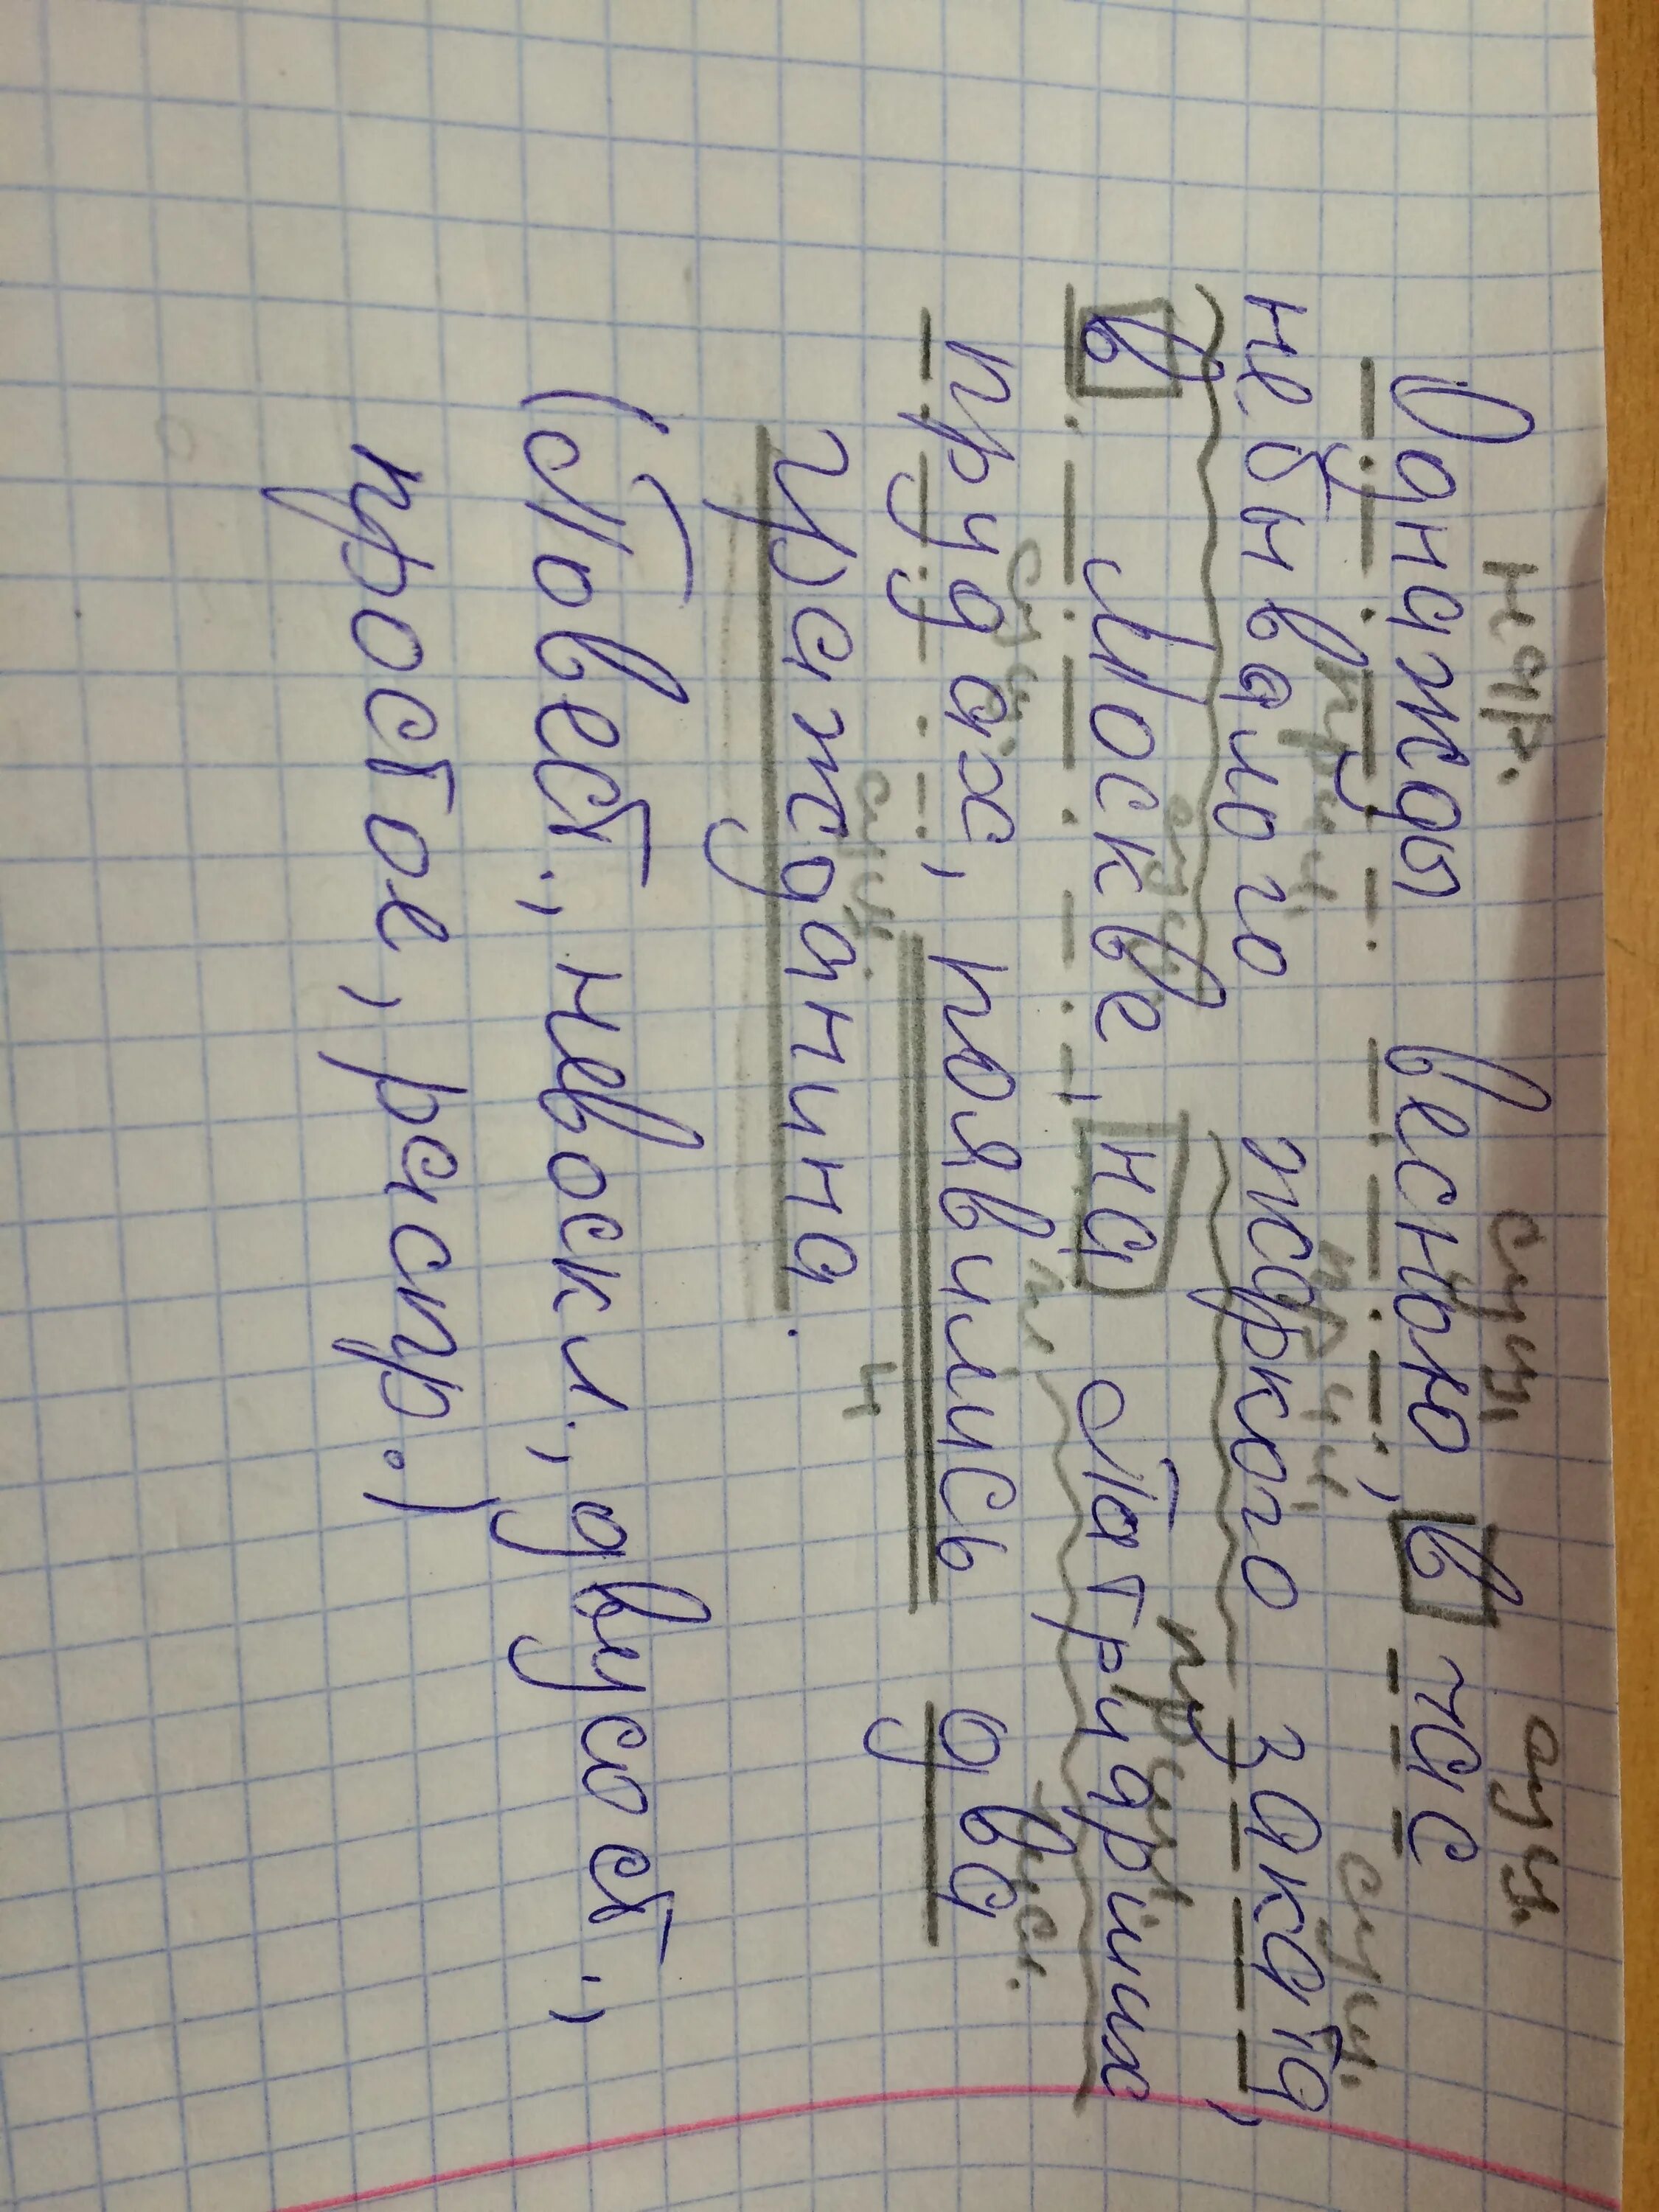 нар. сущ. сущ.
Однажды весною, в час
прил. прил. сущ.
небывало жаркого заката,
сущ. прил.
в Москве, на Патриарших
сущ. гл. чис.
прудах, появились два
сущ.
гражданина.
(Повест., невоскл., двусост.,
простое, распр.)